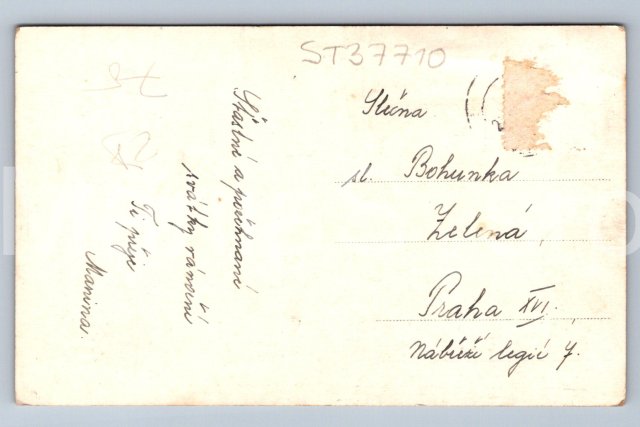 ST37710
Šťastné a požehnané
svátky vánoční
Ti přeje
Manina.
Slečna
sl. Bohunka
Zelená,
Praha XVI.
Nábřeží legií 7.